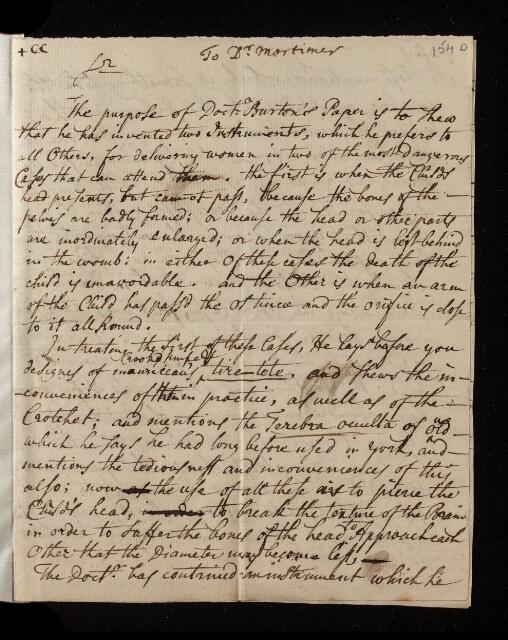 + CC
To Dr. Mortimer
154 D
Sr
The purpose of Doctr. Burton's Paper is to shew
that he has invented two Instruments, which he prefers to
all Others, for delivering women in two of the most Dangerous
Cases that can attend them. the first is when the Child's
head presents, but cannot pass, because the bones of the
pelvis are badly formed; or because the head or other parts
are inordinately enlarged; or when the head is left behind
in the womb: in either of these cases the death of the
child is unavoidable. and the Other is when an arm
of the Child has pass'd the os tincæ and the orifice is close
to it all Round.
In treating the first of these Cases, He lays before you
designs of mauriceau's tire-tete, and shews the in-
conveniences of in practice, as well as of the
Crotchet; and mentions the Terebra occulta of old
which he says he had long before used in York, and
mentions the tediousness and inconveniences of this
also; now the use of all these is to pierce the
Child's head, to break the texture of the Brain
in order to suffer the bones of the head to Approach each
Other that the diameter may become less,
The Doctr. has contrived an instrument which he